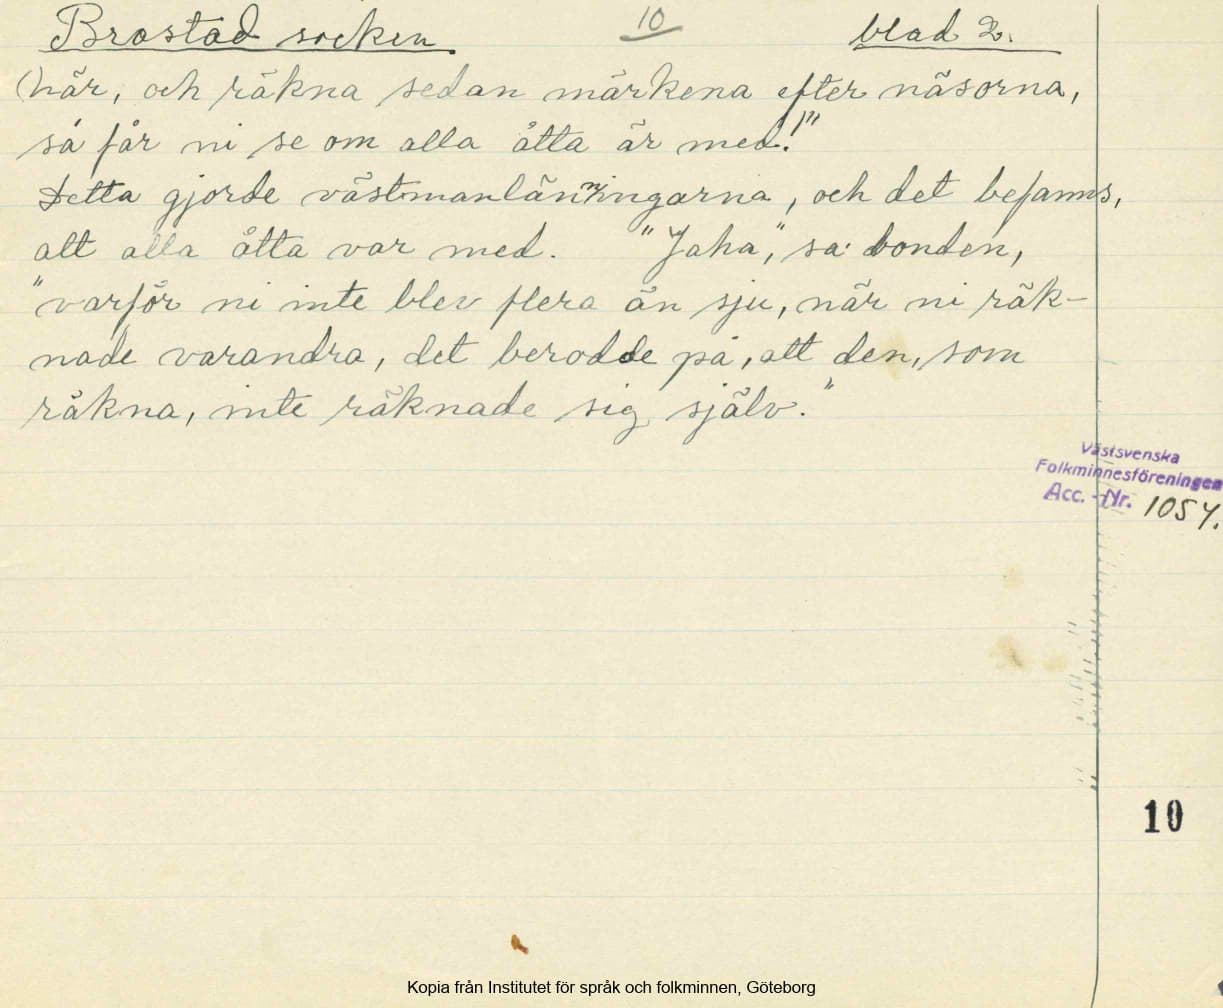 Brastad socken. 10 blad 2.
(här, och räkna sedan märkena efter näsorna,
så får ni se om alla åtta är med!"
Detta gjorde västmanlänningarna, och det befanns,
att alla åtta var med. "Jaha," sa bonden,
"varför ni inte blev flera än sju, när ni räk-
nade varandra, det berodde på, att den, som
räkna, inte räknade sig själv."
Västsvenska
Folkminnesföreningen
Acc. - Nr. 1054.
10
Kopia från Institutet för språk och folkminnen, Göteborg